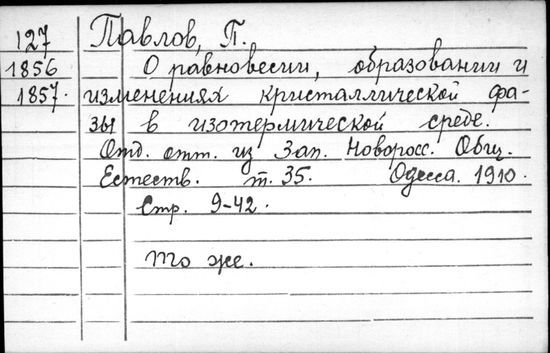 127 Павлов, П.
1856 О равновесии, образовании и
1857. изменениях кристаллической фа-
зы в изотермической среде.
Отд. отт. из Зап. Новоросс. Общ.
Естеств. т. 35. Одесса. 1910.
Стр. 9-42.
То же.